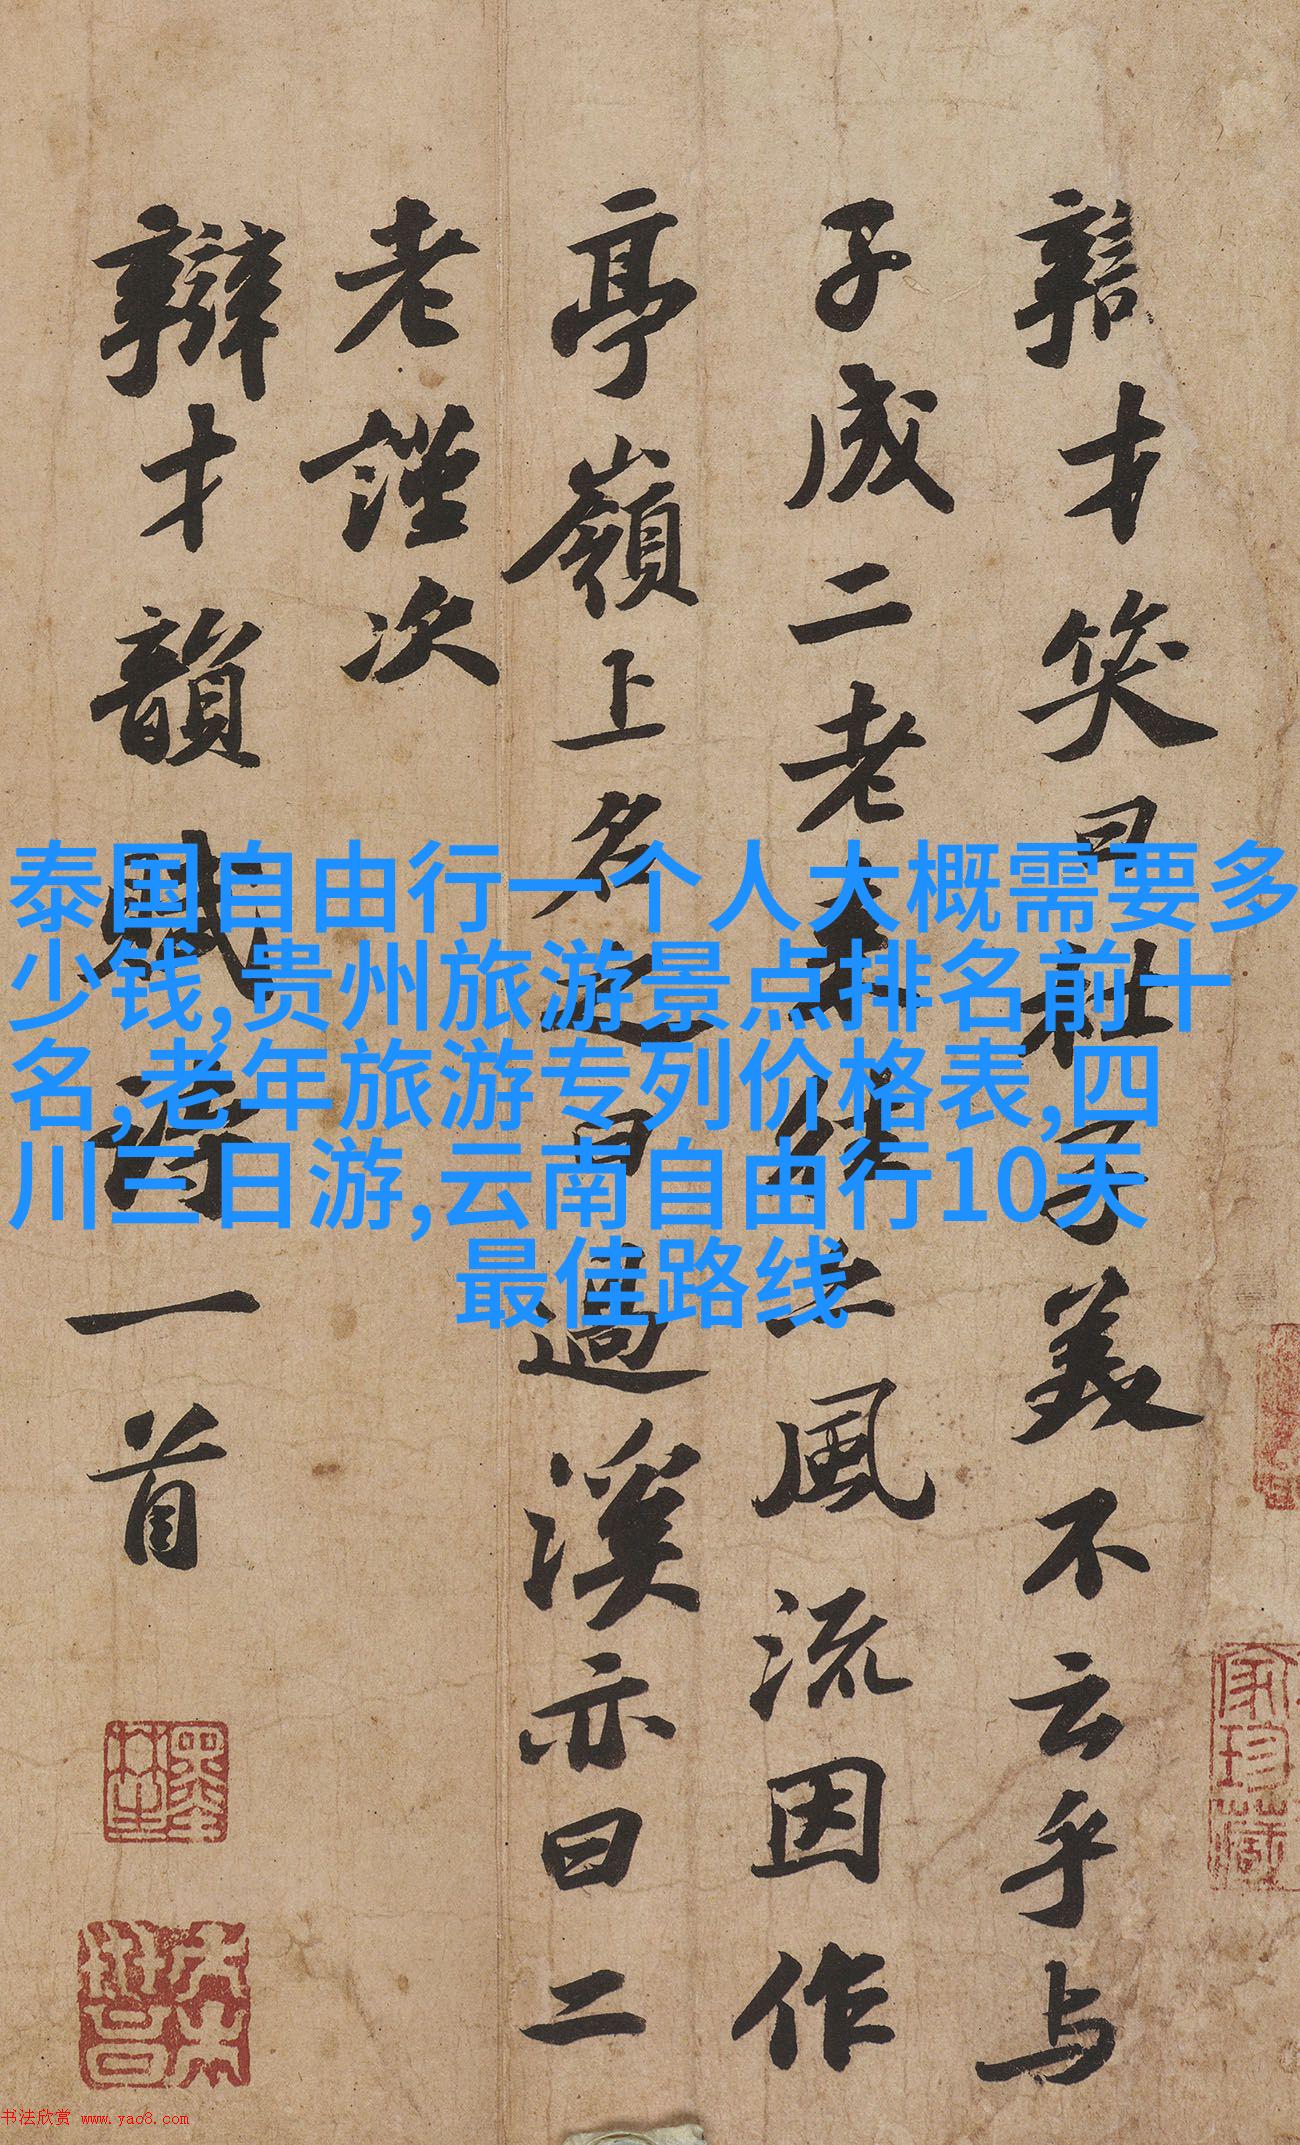 辯才笑曰杜子美不云乎与
子成二老来往之風流因作
亭嶺上名之曰過溪亦曰二
老謹次
辯才韻賦詩一首
泰国自由行一个人大概需要多
少钱,贵州旅游景点排名前十
名,老年旅游专列价格表,四
川三日游,云南自由行10天
最佳路线
家珍藏
书法欣赏 www.yac8.com